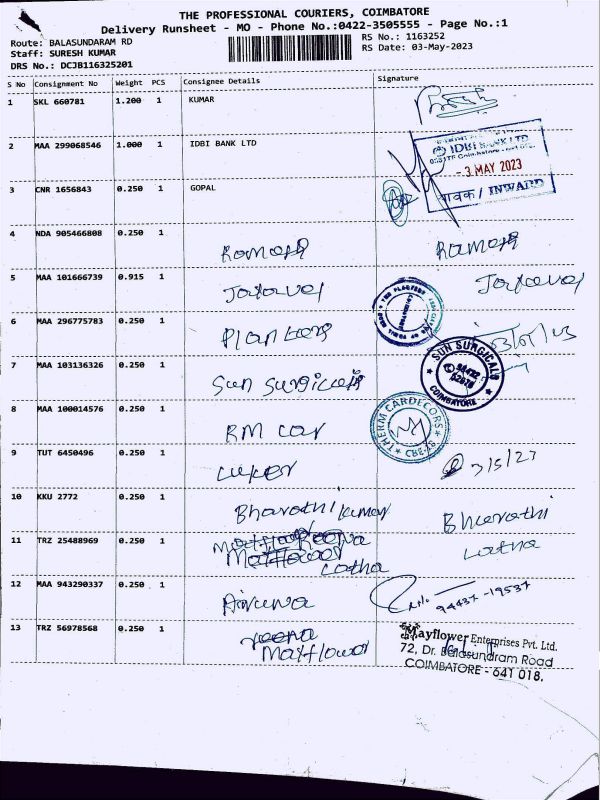 THE PROFESSIONAL COURIERS, COIMBATORE
Delivery Runsheet - MO - Phone No.:0422-3505555 - Page No.:1
Route: BALASUNDARAM RD
Staff: SURESH KUMAR
DRS No.: DCJB116325201
RS No.: 1163252
RS Date: 03-May-2023
S No Consignment No Weight PCS Consignee Details Signature
1 SKL 660781 1.200 1 KUMAR
2 MAA 299068546 1.000 1 IDBI BANK LTD
IDBI BANK LTD
- 3 MAY 2023
आवक / INWARD
3 CNR 1656843 0.250 1 GOPAL
4 NDA 905466808 0.250 1 Ramesh Ramesh
5 MAA 101666739 0.915 1
6 MAA 296775783 0.250 1
7 MAA 103136326 0.250 1 Sun Surgicals
SUN SURGICALS
COIMBATORE
8 MAA 100014576 0.250 1 RM car
THERM CARDECORS
CBE-18
9 TUT 6450496 0.250 1
3/5/23
10 KKU 2772 0.250 1 Bharathi kumar Bharathi
11 TRZ 25488969 0.250 1 Latha Latha
12 MAA 943290337 0.250 1 Aruna
94437-19537
13 TRZ 56978568 0.250 1 Mayflower
Mayflower Enterprises Pvt. Ltd.
72, Dr. Balasundram Road
COIMBATORE - 641 018.